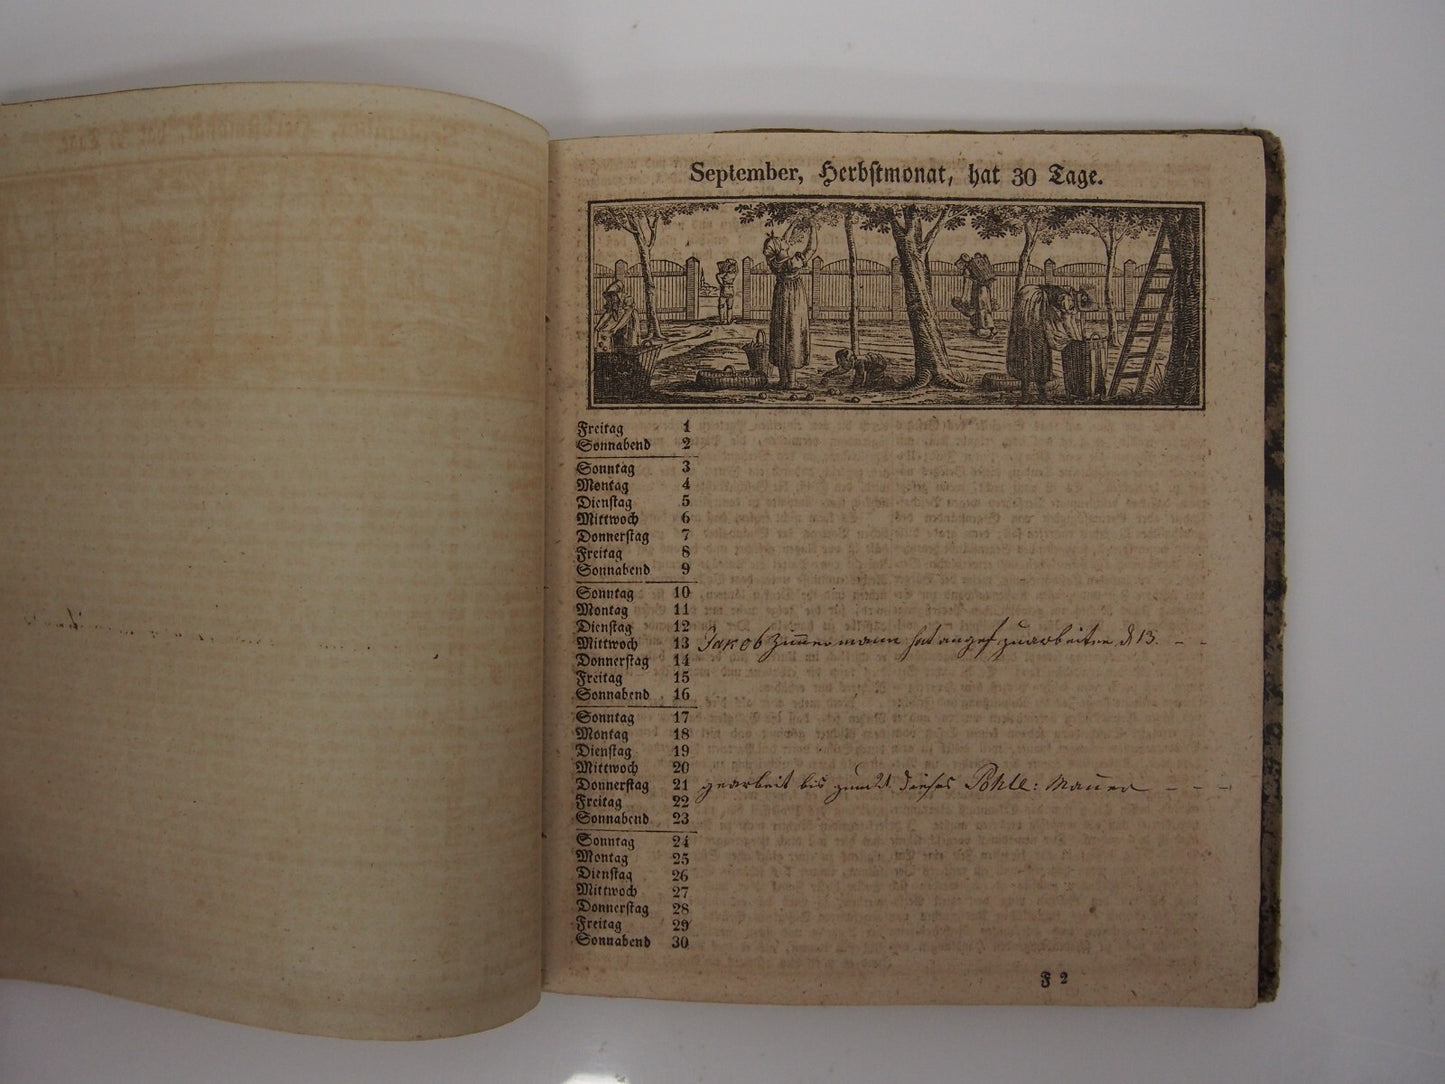 September, Herbstmonat, hat 30 Tage.
Freitag 1
Sonnabend 2
Sonntag 3
Montag 4
Dienstag 5
Mittwoch 6
Donnerstag 7
Freitag 8
Sonnabend 9
Sonntag 10
Montag 11
Dienstag 12
Mittwoch 13 Jakob Zimmermann hat angef. zu arbeiten d 13. - -
Donnerstag 14
Freitag 15
Sonnabend 16
Sonntag 17
Montag 18
Dienstag 19
Mittwoch 20
Donnerstag 21 gearbeit bis zum 21 dieses Pohle: Mauer - - -
Freitag 22
Sonnabend 23
Sonntag 24
Montag 25
Dienstag 26
Mittwoch 27
Donnerstag 28
Freitag 29
Sonnabend 30
F 2